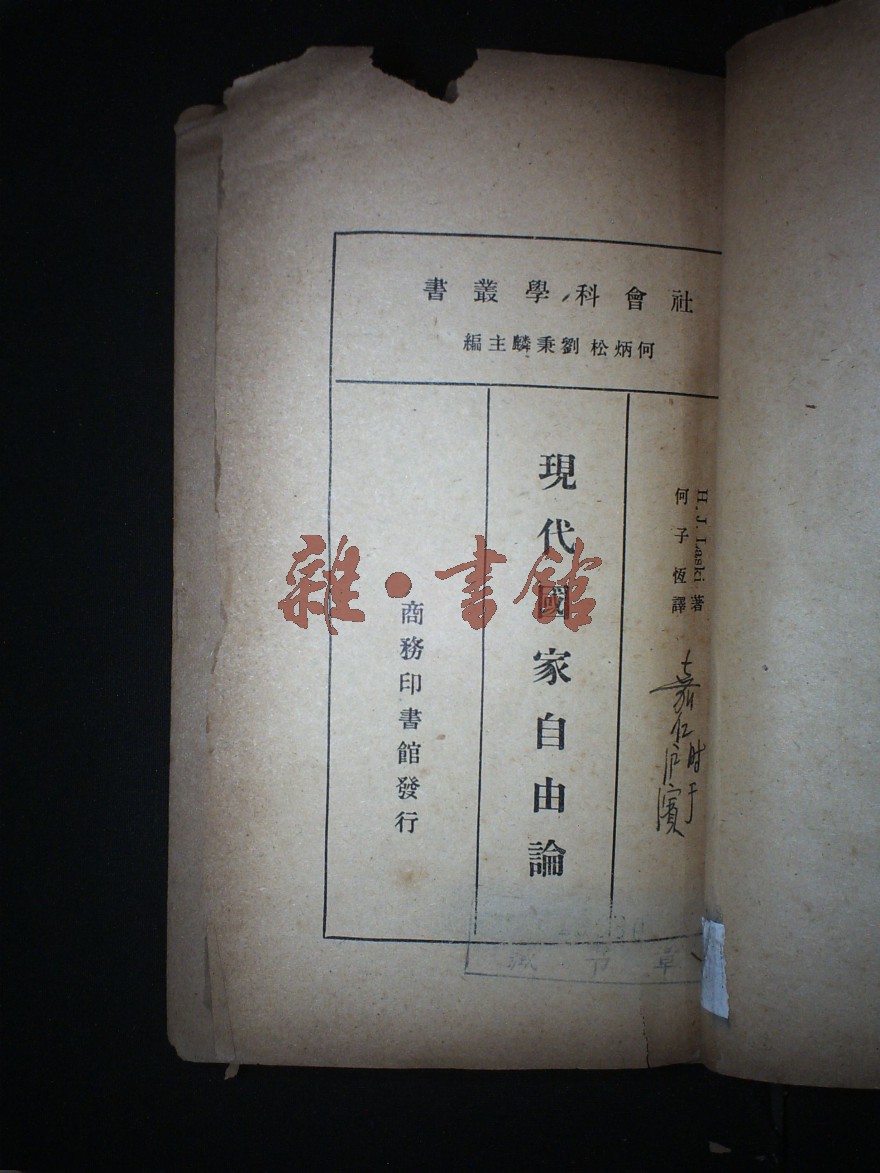 社會科學叢書
何炳松劉秉麟主編
H. J. Laski 著
何子恆譯
現代國家自由論
商務印書館發行
雜·書館